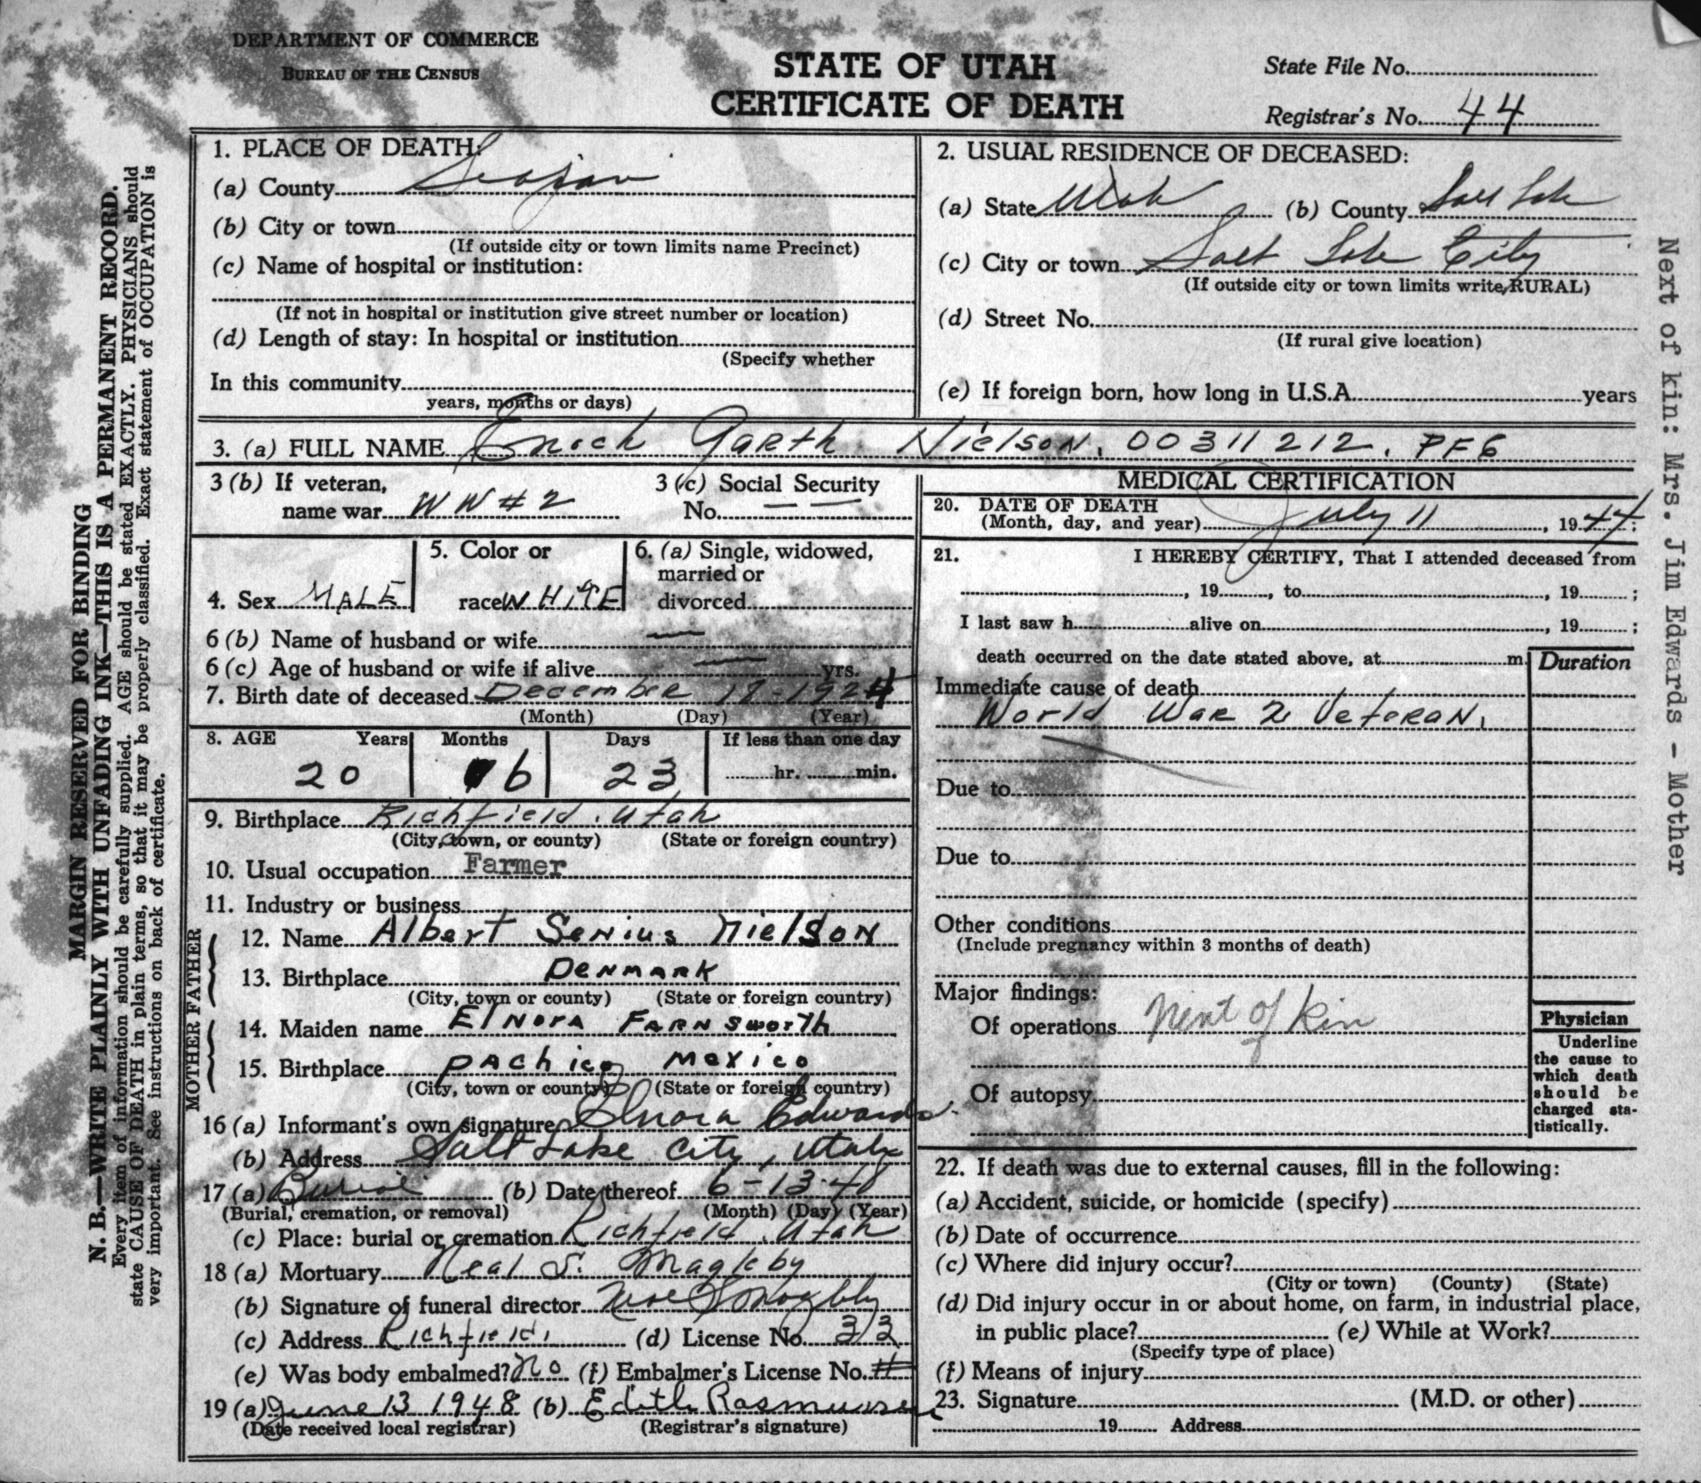 DEPARTMENT OF COMMERCE
BUREAU OF THE CENSUS
STATE OF UTAH
CERTIFICATE OF DEATH
State File No.
Registrar's No. 44
MARGIN RESERVED FOR BINDING
N. B.—WRITE PLAINLY WITH UNFADING INK—THIS IS A PERMANENT RECORD.
Every item of information should be carefully supplied. AGE should be stated EXACTLY. PHYSICIANS should
state CAUSE OF DEATH in plain terms, so that it may be properly classified. Exact statement of OCCUPATION is
very important. See instructions on back of certificate.
1. PLACE OF DEATH:
(a) County
(b) City or town
(If outside city or town limits name Precinct)
(c) Name of hospital or institution:
(If not in hospital or institution give street number or location)
(d) Length of stay: In hospital or institution
(Specify whether
In this community
years, months or days)
2. USUAL RESIDENCE OF DECEASED:
(a) State Utah (b) County Salt Lake
(c) City or town Salt Lake City
(If outside city or town limits write RURAL)
(d) Street No.
(If rural give location)
(e) If foreign born, how long in U.S.A. years
3. (a) FULL NAME Enoch Garth Nielson. 00311212. PF6
3 (b) If veteran,
name war WW#2
3 (c) Social Security
No. — —
4. Sex MALE
5. Color or
race WHITE
6. (a) Single, widowed,
married or
divorced
6 (b) Name of husband or wife —
6 (c) Age of husband or wife if alive — yrs.
7. Birth date of deceased December 18-1924
(Month) (Day) (Year)
8. AGE Years Months Days If less than one day
20 6 23 hr. min.
9. Birthplace Richfield, Utah
(City, town, or county) (State or foreign country)
10. Usual occupation Farmer
11. Industry or business
FATHER
12. Name Albert Senius Nielson
13. Birthplace Denmark
(City, town or county) (State or foreign country)
MOTHER
14. Maiden name Elnora Farnsworth
15. Birthplace Pachico Mexico
(City, town or county) (State or foreign country)
16 (a) Informant's own signature Elnora Edwards.
(b) Address Salt Lake City, Utah
17 (a) Burial (b) Date thereof 6-13-48
(Burial, cremation, or removal) (Month) (Day) (Year)
(c) Place: burial or cremation Richfield, Utah
18 (a) Mortuary Neal S. Magleby
(b) Signature of funeral director Neal S Magleby
(c) Address Richfield. (d) License No. 33
(e) Was body embalmed? No (f) Embalmer's License No. #
19 (a) June 13 1948 (b) Edith Rasmussen
(Date received local registrar) (Registrar's signature)
MEDICAL CERTIFICATION
20. DATE OF DEATH
(Month, day, and year) July 11, 1944;
21. I HEREBY CERTIFY, That I attended deceased from
, 19 , to , 19 ;
I last saw h alive on , 19 ;
death occurred on the date stated above, at m.
Duration
Immediate cause of death
World War 2 Veteran.
Due to
Due to
Other conditions
(Include pregnancy within 3 months of death)
Major findings:
Of operations Next of Kin
Of autopsy
Physician
Underline
the cause to
which death
should be
charged sta-
tistically.
22. If death was due to external causes, fill in the following:
(a) Accident, suicide, or homicide (specify)
(b) Date of occurrence
(c) Where did injury occur?
(City or town) (County) (State)
(d) Did injury occur in or about home, on farm, in industrial place,
in public place? (e) While at Work?
(Specify type of place)
(f) Means of injury
23. Signature (M.D. or other)
19 Address
Next of kin: Mrs. Jim Edwards - Mother